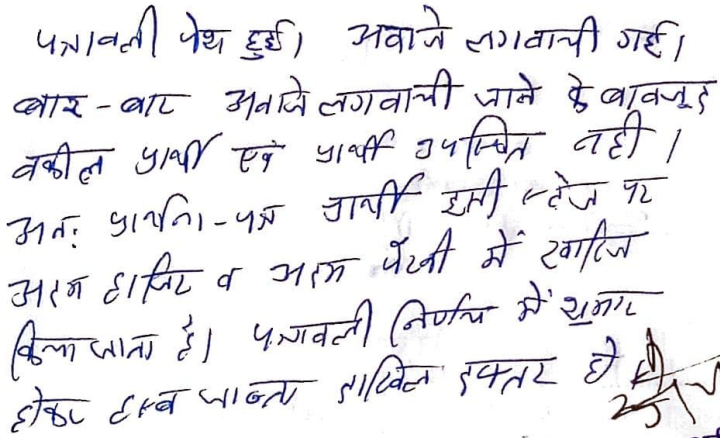 पत्रावली पेश हुई। अवाजे लगवायी गई।
बार-बार अवाजे लगवायी जाने के बावजूद
वकील प्रार्थी एवं प्रार्थी उपस्थित नही।
अतः प्रार्थना-पत्र प्रार्थी इसी स्टेज पर
अदम हाजिर व अदम पैरवी में खारिज
किया जाता है। पत्रावली निर्णय में शुमार
होकर हस्ब जाब्ता दाखिल दफ्तर हो